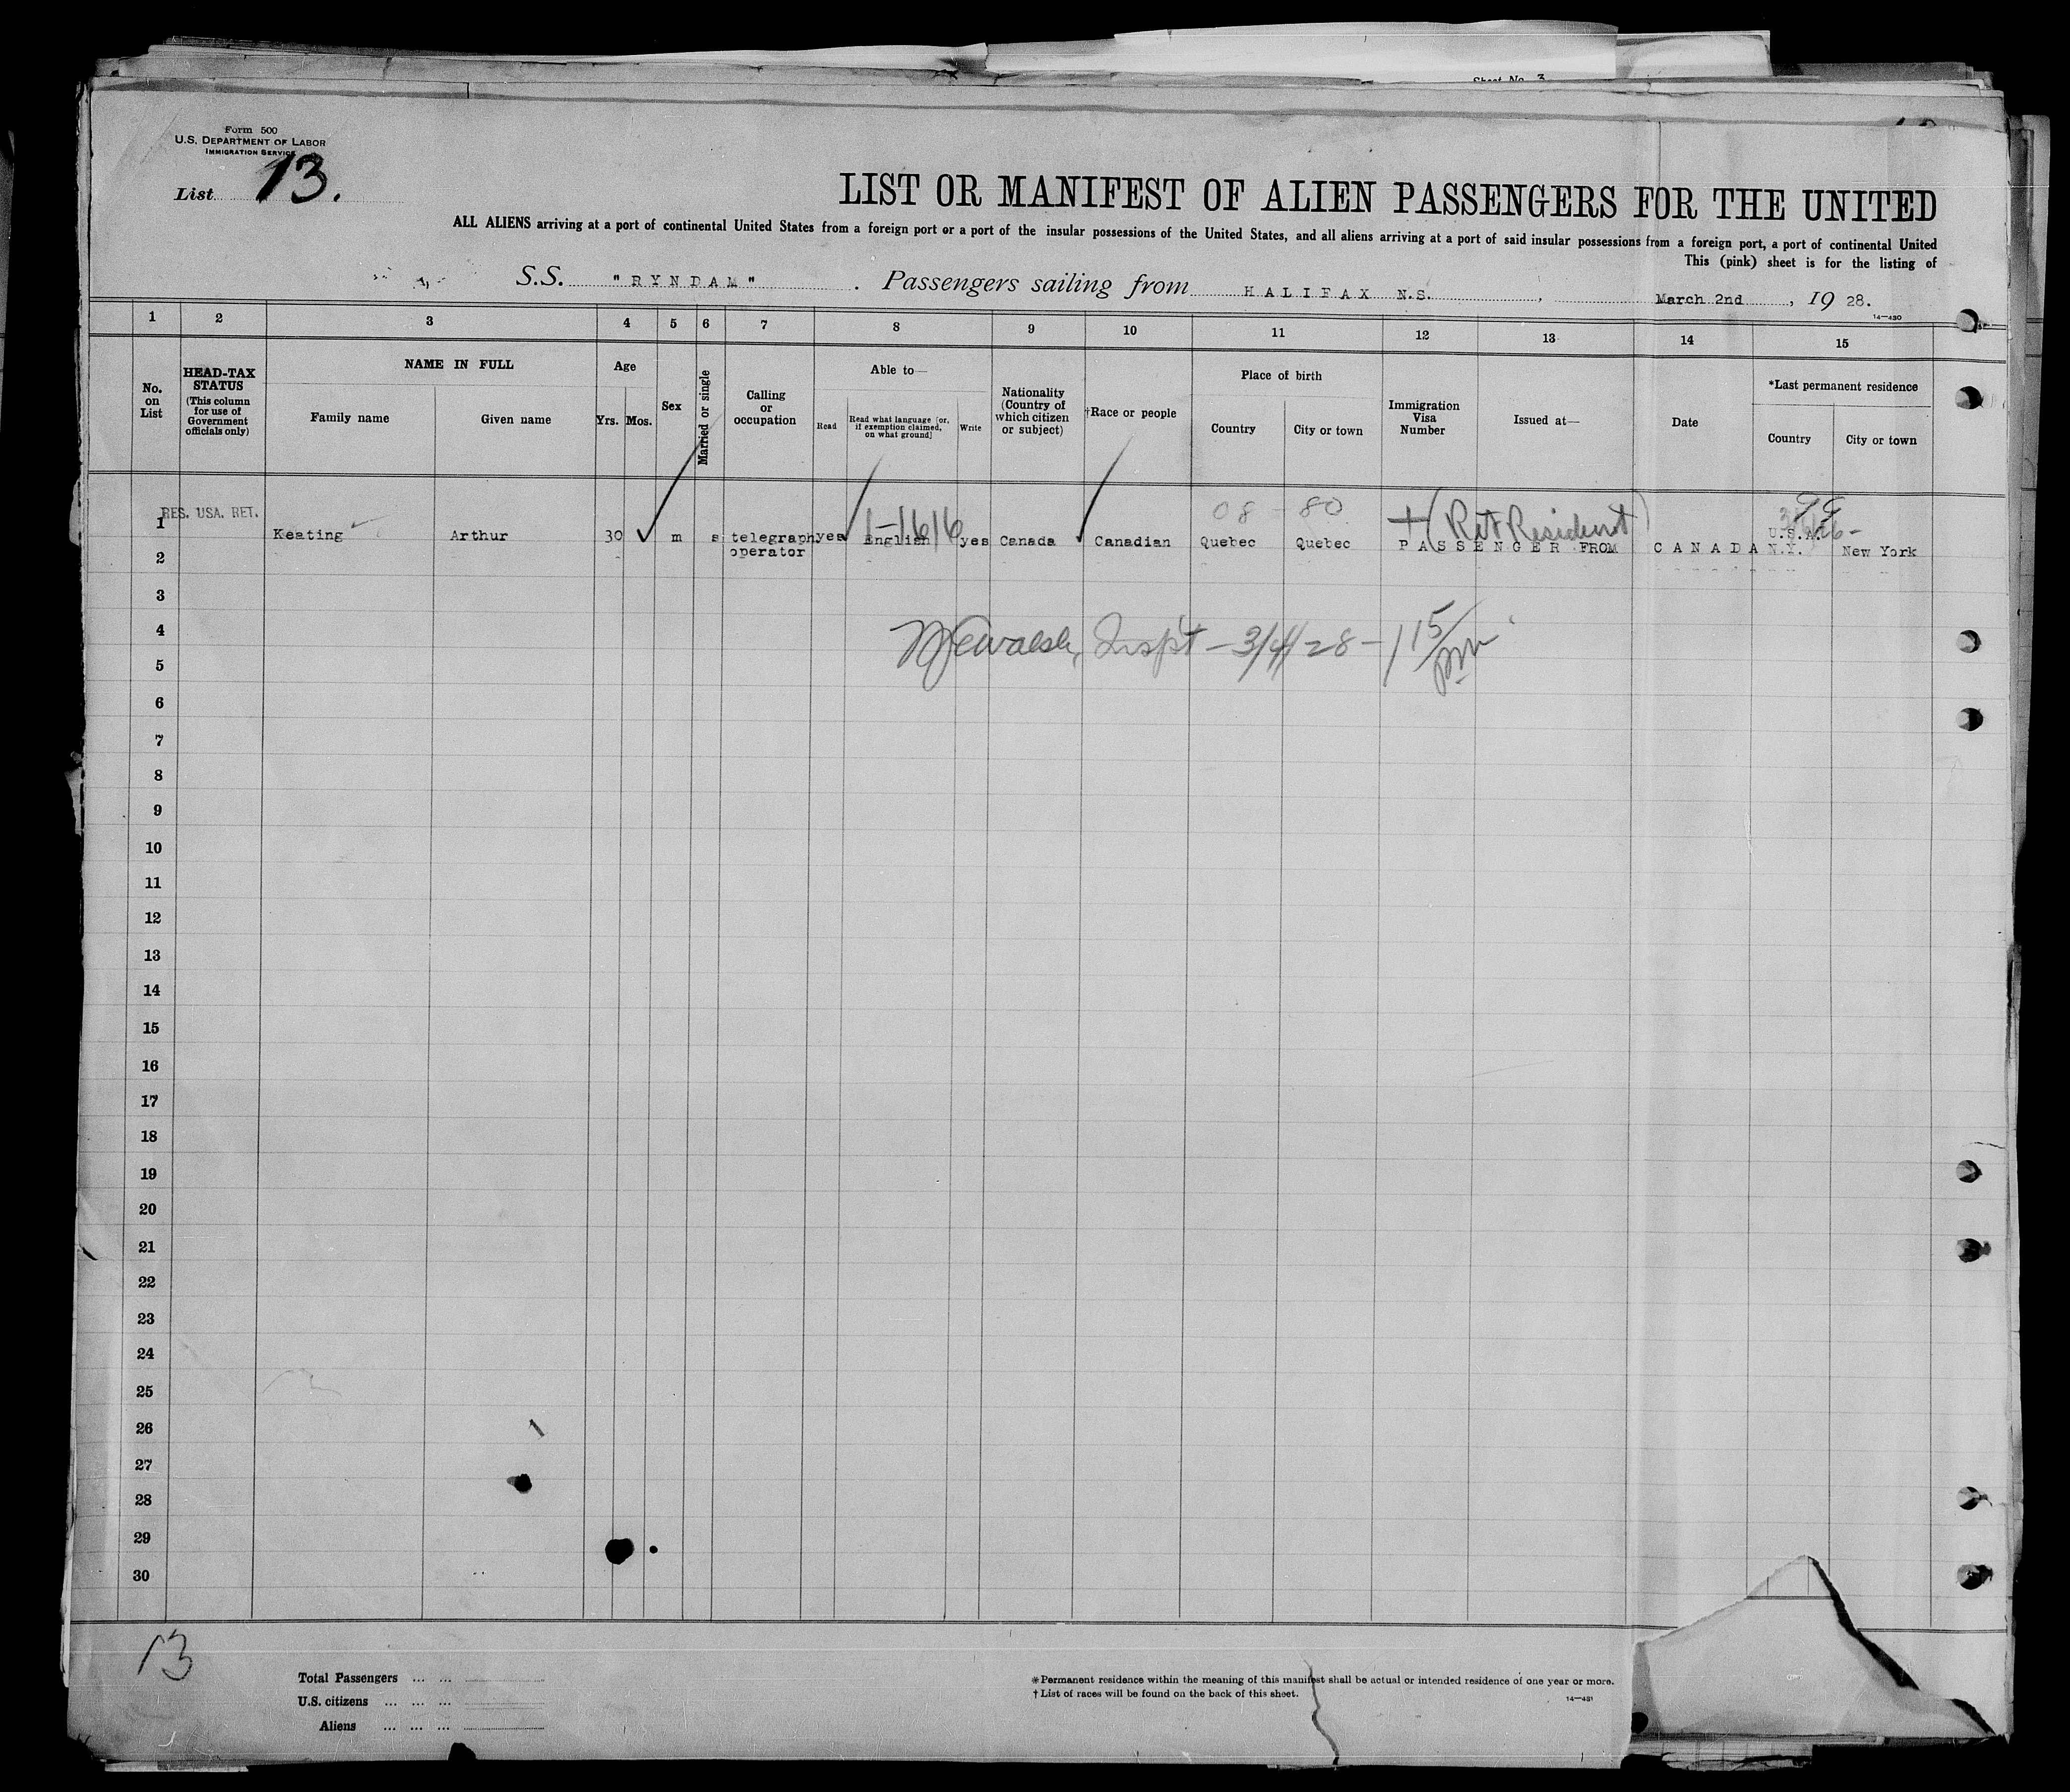 Sheet No. 3
Form 500
U.S. DEPARTMENT OF LABOR
IMMIGRATION SERVICE
List 13.
LIST OR MANIFEST OF ALIEN PASSENGERS FOR THE UNITED
ALL ALIENS arriving at a port of continental United States from a foreign port or a port of the insular possessions of the United States, and all aliens arriving at a port of said insular possessions from a foreign port, a port of continental United
This (pink) sheet is for the listing of
S.S. "RYNDAM" . Passengers sailing from HALIFAX N.S. , March 2nd , 19 28.
14—430
1 2 3 4 5 6 7 8 9 10 11 12 13 14 15
No. on List
HEAD-TAX STATUS (This column for use of Government officials only)
NAME IN FULL
Family name Given name
Age
Yrs. Mos.
Sex
Married or single
Calling or occupation
Able to—
Read Read what language [or, if exemption claimed, on what ground] Write
Nationality (Country of which citizen or subject)
†Race or people
Place of birth
Country City or town
Immigration Visa Number
Issued at—
Date
*Last permanent residence
Country City or town
08 - 80 + (Ret Resident)
RES. USA. RET.
1 Keating Arthur 30 m s telegraph yes English yes Canada Canadian Quebec Quebec PASSENGER FROM CANADA U.S.A. N.Y. New York
operator
1-1616
2
3
4
Inspt - 3/4/28 - 1 15/pm
5
6
7
8
9
10
11
12
13
14
15
16
17
18
19
20
21
22
23
24
25
26
27
28
29
30
13
Total Passengers ... ...
U.S. citizens ... ... ...
Aliens ... ... ...
*Permanent residence within the meaning of this manifest shall be actual or intended residence of one year or more.
†List of races will be found on the back of this sheet.
14—431